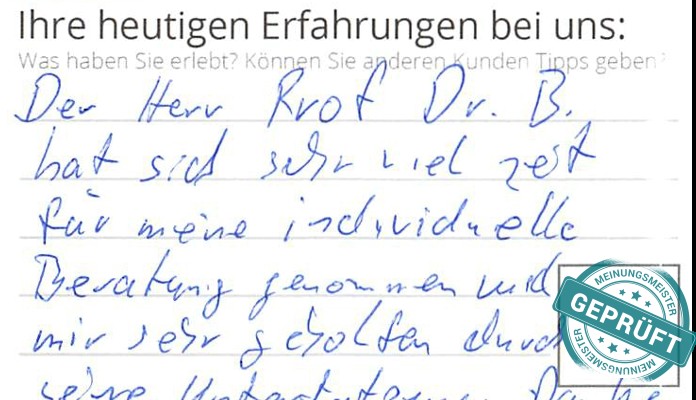 Ihre heutigen Erfahrungen bei uns:
Was haben Sie erlebt? Können Sie anderen Kunden Tipps geben?
Der Herr Prof Dr. B.
hat sich sehr viel zeit
für meine individuelle
Beratung genommen und
mir sehr geholfen durch
seine Unterstützung. Danke
MEINUNGSMEISTER
GEPRÜFT
MEINUNGSMEISTER